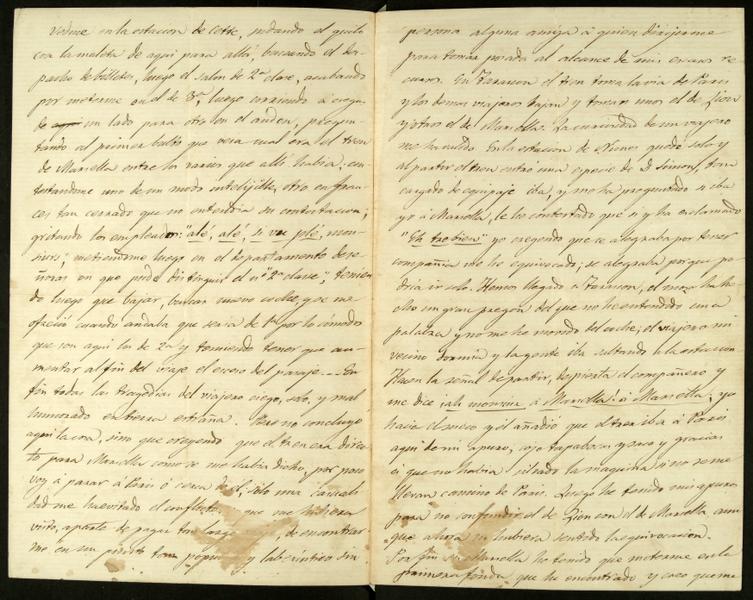 verme en la estacion de Cette, sudando el quilo
con la maleta de aqui para allá, buscando el des-
pacho de billetes, luego el salon de 2ª clase, acabando
por meterme en el de 3ª, luego corriendo á ciegas
de un lado para otro en el anden, pregun-
tando al primer bulto que veia cual era el tren
de Marsella entre los varios que alli habia; con-
testandome uno de un modo intelijible, otro en fran-
ces tan cerrado que no entendia su contestacion;
gritando los empleados: "alé, alé, si vu plé, mon-
siur; metiendome luego en el departamento de se-
ñoras en que pude distinguir el nº "2ª clase"; tenien-
do luego que bajar, buscar nuevo coche y se me
ofreció cuando andaba que seria de 1ª por lo cómodos
que son aqui los de 2ª y temiendo tener que au-
mentar al fin del viaje el exceso del pasaje... En
fin todas las tragedias del viajero ciego, solo, y mal
humorado en tierra estraña. Pero no concluyo
aqui la cosa, sino que creyendo que el tren era direc-
to para Marsella como se me habia dicho, por poco
voy á parar á Paris ó cerca de él; solo una casuali-
dad me ha evitado el conflicto que me hubiera
visto, aparte de pagar tan largo viaje, de encontrar-
me en un pueblo tan populoso y laberíntico sin
persona alguna amiga á quien dirijirme
para tomar posada al alcance de mis escasos re-
cursos. En Tarascon el tren toma la via de Paris
y los demas viajeros bajan y toman unos el de Lion
y otros el de Marsella. La curiosidad de un viajero
me ha valido. En la estacion de Nimes quedé solo y
al partir el tren entro una especie de D. Simon, tan
cargado de equipaje iba, y me ha preguntado si iba
yo á Marsella, le he contestado que si y ha esclamado
"Eh tre bien" yo creyendo que se alegraba por tener
compañia me he equivocado; se alegraba porque po-
dria ir solo. Hemos llegado á Tarascon, el mozo ha he-
cho un gran pregon del que no he entendido una
palabra y no me he movido del coche; el viajero mi
vecino dormia y la gente iba saltando á la estacion
Hacen la señal de partir, despierta el compañero y
me dice ¡ah monsiur á Marsella! á Marsella; yo
hacia el sueco y él añadió que el tren iba á Paris
aqui de mi apuro, cojo tapabocas y saco y gracias
á que no habia silvado la maquina si no se me
llevan camino de Paris. Luego he tenido mis apuros
para no confundir el de Lion con el de Marsella aun
que ahora no hubiera sentido la equivocacion.
Por fin en Marsella he tenido que meterme en la
primera fonda que he encontrado y creo que me